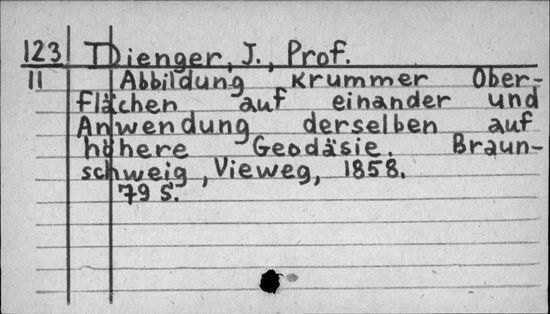 123 Dienger, J., Prof.
11 Abbildung krummer Ober-
flächen auf einander und
Anwendung derselben auf
höhere Geodäsie. Braun-
schweig, Vieweg, 1858.
79 S.